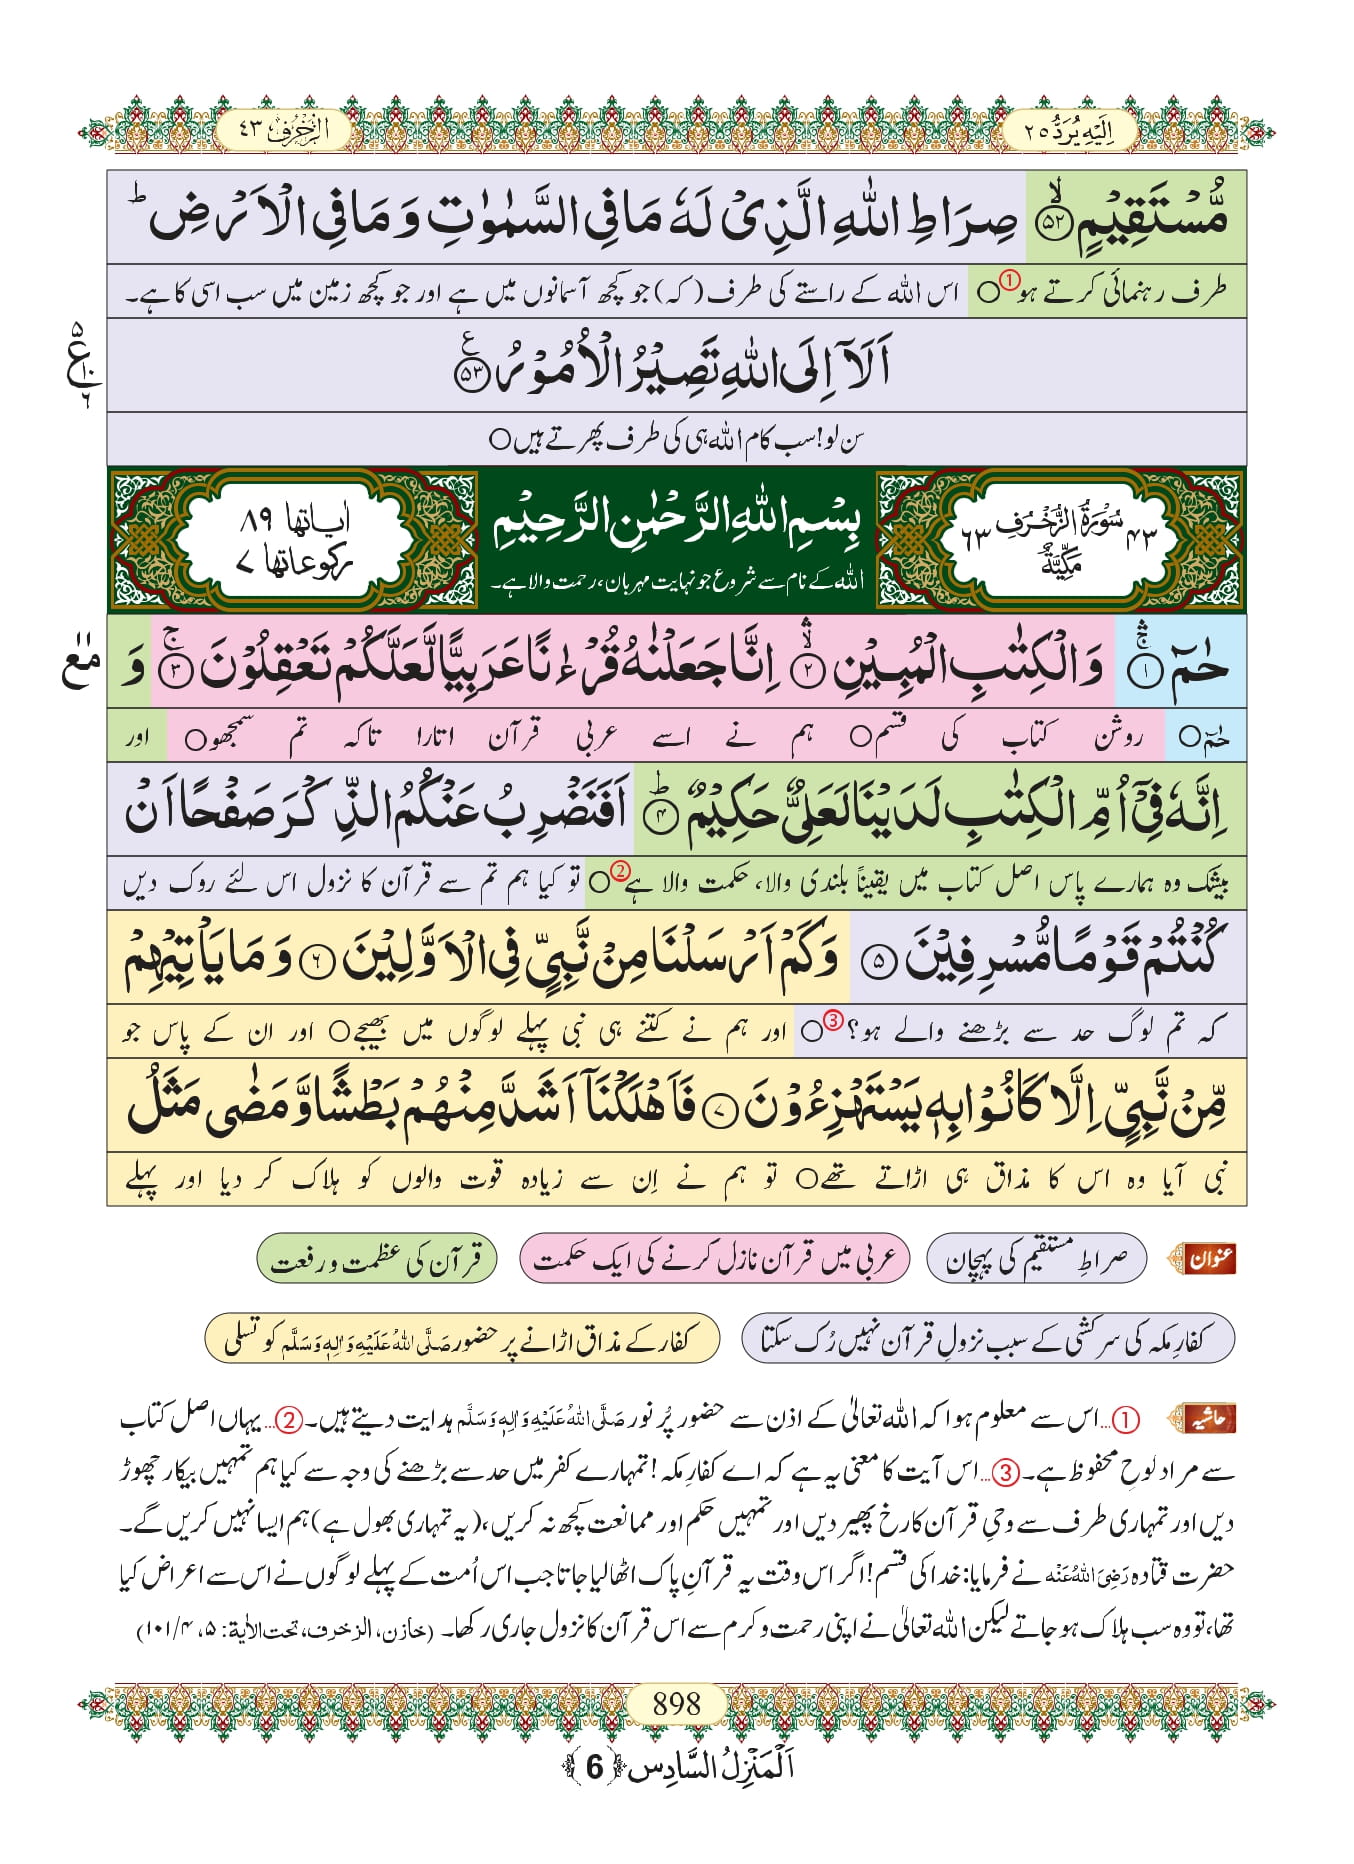 اِلَیْهِ یُرَدُّ ٢٥
الزُّخْرُف ٤٣
مُّسْتَقِیْمٍۙ﴿۵۲﴾ صِرَاطِ اللّٰهِ الَّذِیْ لَهٗ مَا فِی السَّمٰوٰتِ وَ مَا فِی الْاَرْضِؕ
طرف رہنمائی کرتے ہو①○ اس اللہ کے راستے کی طرف (کہ) جو کچھ آسمانوں میں ہے اور جو کچھ زمین میں سب اسی کا ہے۔
اَلَاۤ اِلَى اللّٰهِ تَصِیْرُ الْاُمُوْرُ۠﴿۵۳﴾
ع
۵
۱۰
۶
سن لو! سب کام اللہ ہی کی طرف پھرتے ہیں○
۴۳ سُوْرَةُ الزُّخْرُفِ ۶۳
مَكِّیَّةٌ
بِسْمِ اللّٰهِ الرَّحْمٰنِ الرَّحِیْمِ
اللہ کے نام سے شروع جو نہایت مہربان، رحمت والا ہے۔
اٰیاتھا ۸۹
رکوعاتھا ۷
حٰمٓۚۛ﴿۱﴾ وَ الْكِتٰبِ الْمُبِیْنِۙۛ﴿۲﴾ اِنَّا جَعَلْنٰهُ قُرْءٰنًا عَرَبِیًّا لَّعَلَّكُمْ تَعْقِلُوْنَۚ﴿۳﴾ وَ
مع
حٰمٓ○ روشن کتاب کی قسم○ ہم نے اسے عربی قرآن اتارا تاکہ تم سمجھو○ اور
اِنَّهٗ فِیْۤ اُمِّ الْكِتٰبِ لَدَیْنَا لَعَلِیٌّ حَكِیْمٌؕ﴿۴﴾ اَفَنَضْرِبُ عَنْكُمُ الذِّكْرَ صَفْحًا اَنْ
بیشک وہ ہمارے پاس اصل کتاب میں یقیناً بلندی والا، حکمت والا ہے②○ تو کیا ہم تم سے قرآن کا نزول اس لئے روک دیں
كُنْتُمْ قَوْمًا مُّسْرِفِیْنَ﴿۵﴾ وَ كَمْ اَرْسَلْنَا مِنْ نَّبِیٍّ فِی الْاَوَّلِیْنَ﴿۶﴾ وَ مَا یَاْتِیْهِمْ
کہ تم لوگ حد سے بڑھنے والے ہو؟③○ اور ہم نے کتنے ہی نبی پہلے لوگوں میں بھیجے○ اور ان کے پاس جو
مِّنْ نَّبِیٍّ اِلَّا كَانُوْا بِهٖ یَسْتَهْزِءُوْنَ﴿۷﴾ فَاَهْلَكْنَاۤ اَشَدَّ مِنْهُمْ بَطْشًا وَّ مَضٰى مَثَلُ
نبی آیا وہ اس کا مذاق ہی اڑاتے تھے○ تو ہم نے اِن سے زیادہ قوت والوں کو ہلاک کر دیا اور پہلے
عنوان
صراطِ مستقیم کی پہچان
عربی میں قرآن نازل کرنے کی ایک حکمت
قرآن کی عظمت و رفعت
کفارِ مکہ کی سرکشی کے سبب نزولِ قرآن نہیں رُک سکتا
کفار کے مذاق اڑانے پر حضور صَلَّى اللّٰهُ عَلَیْهِ وَاٰلِهٖ وَسَلَّم کو تسلی
حاشیہ
①...اس سے معلوم ہوا کہ اللہ تعالیٰ کے اذن سے حضور پُر نور صَلَّى اللّٰهُ عَلَیْهِ وَاٰلِهٖ وَسَلَّم ہدایت دیتے ہیں۔ ②...یہاں اصل کتاب
سے مراد لوحِ محفوظ ہے۔ ③...اس آیت کا معنی یہ ہے کہ اے کفارِ مکہ! تمہارے کفر میں حد سے بڑھنے کی وجہ سے کیا ہم تمہیں بیکار چھوڑ
دیں اور تمہاری طرف سے وحیِ قرآن کا رخ پھیر دیں اور تمہیں حکم اور ممانعت کچھ نہ کریں، (یہ تمہاری بھول ہے) ہم ایسا نہیں کریں گے۔
حضرت قتادہ رَضِیَ اللّٰهُ عَنْه نے فرمایا: خدا کی قسم! اگر اس وقت یہ قرآنِ پاک اٹھا لیا جاتا جب اس اُمت کے پہلے لوگوں نے اس سے اعراض کیا
تھا، تو وہ سب ہلاک ہو جاتے لیکن اللہ تعالیٰ نے اپنی رحمت و کرم سے اس قرآن کا نزول جاری رکھا۔ (خازن، الزخرف، تحت الاٰیۃ: ۵، ۴/۱۰۱)
898
اَلْمَنْزِلُ السَّادِس ﴿6﴾